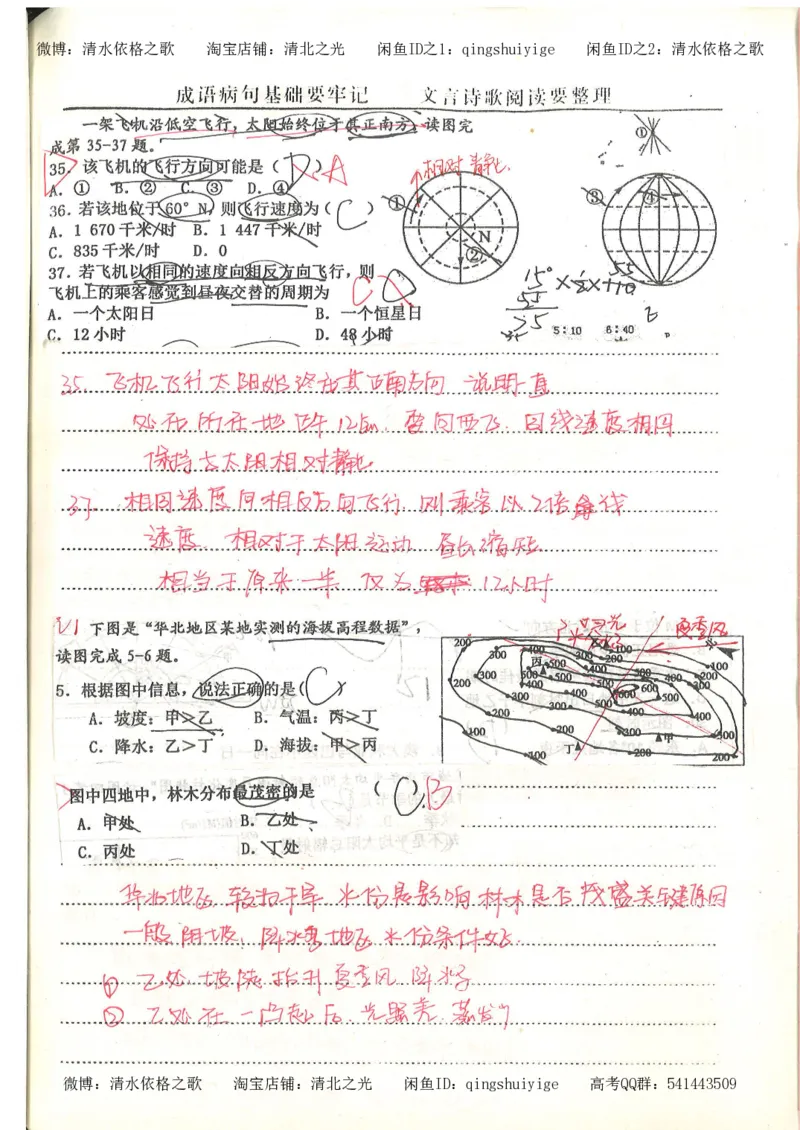 微博：清水依格之歌 淘宝店铺：清北之光 闲鱼ID之1：qingshuiyige 闲鱼ID之2：清水依格之歌
成语病句基础要牢记 文言诗歌阅读要整理
一架飞机沿低空飞行，太阳始终位于其正南方，读图完
成第 35-37 题。
35．该飞机的飞行方向可能是（ D ）× A
A．① B．② C．③ D．④
36．若该地位于 60°N，则飞行速度为（ C ）
A．1 670 千米/时 B．1 447 千米/时
C．835 千米/时 D．0
37．若飞机以相同的速度向相反方向飞行，则
飞机上的乘客感觉到昼夜交替的周期为 C
A．一个太阳日 B．一个恒星日
C．12 小时 D．48 小时
相对静止
① N ②
① ③ ④
15°
55
5：10 6：40
35. 飞机飞行太阳始终在其正南方向 说明一直
处在所在地正午12点，要向西飞，因线速度相同
保持与太阳相对静止
37. 相同速度向相反方向飞行，则乘客以2倍线
速度，相对于太阳运动，昼长缩短
相当于原来一半 仅为 12小时
下图是“华北地区某地实测的海拔高程数据”，
读图完成 5-6 题。
5．根据图中信息，说法正确的是( C )
A．坡度：甲>乙 B．气温：丙>丁
C．降水：乙>丁 D．海拔：甲>丙
夏季风
200 300 400 500 600 100
丙 丁 甲
图中四地中，林木分布最茂密的是 ( C ) B
A．甲处 B．乙处
C．丙处 D．丁处
华北地区 较为干旱 水份是影响林木是否茂盛关键原因
一般阴坡，降水多地区 水份条件好
① 乙处 坡陡 抬升夏季风 降水多
② 乙处在 后 光照
微博：清水依格之歌 淘宝店铺：清北之光 闲鱼ID：qingshuiyige 高考QQ群：541443509